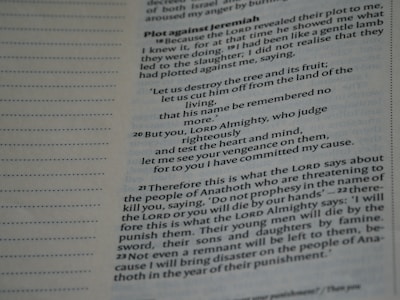 of both Israel and
aroused my anger by burning
Plot against Jeremiah
18 Because the LORD revealed their plot to me,
I knew it, for at that time he showed me what
they were doing. 19 I had been like a gentle lamb
led to the slaughter; I did not realise that they
had plotted against me, saying,
‘Let us destroy the tree and its fruit;
let us cut him off from the land of the
living,
that his name be remembered no
more.’
20 But you, LORD Almighty, who judge
righteously
and test the heart and mind,
let me see your vengeance on them,
for to you I have committed my cause.
21 Therefore this is what the LORD says about
the people of Anathoth who are threatening to
kill you, saying, ‘Do not prophesy in the name of
the LORD or you will die by our hands’ – 22 there-
fore this is what the LORD Almighty says: ‘I will
punish them. Their young men will die by the
sword, their sons and daughters by famine.
23 Not even a remnant will be left to them, be-
cause I will bring disaster on the people of Ana-
thoth in the year of their punishment.’